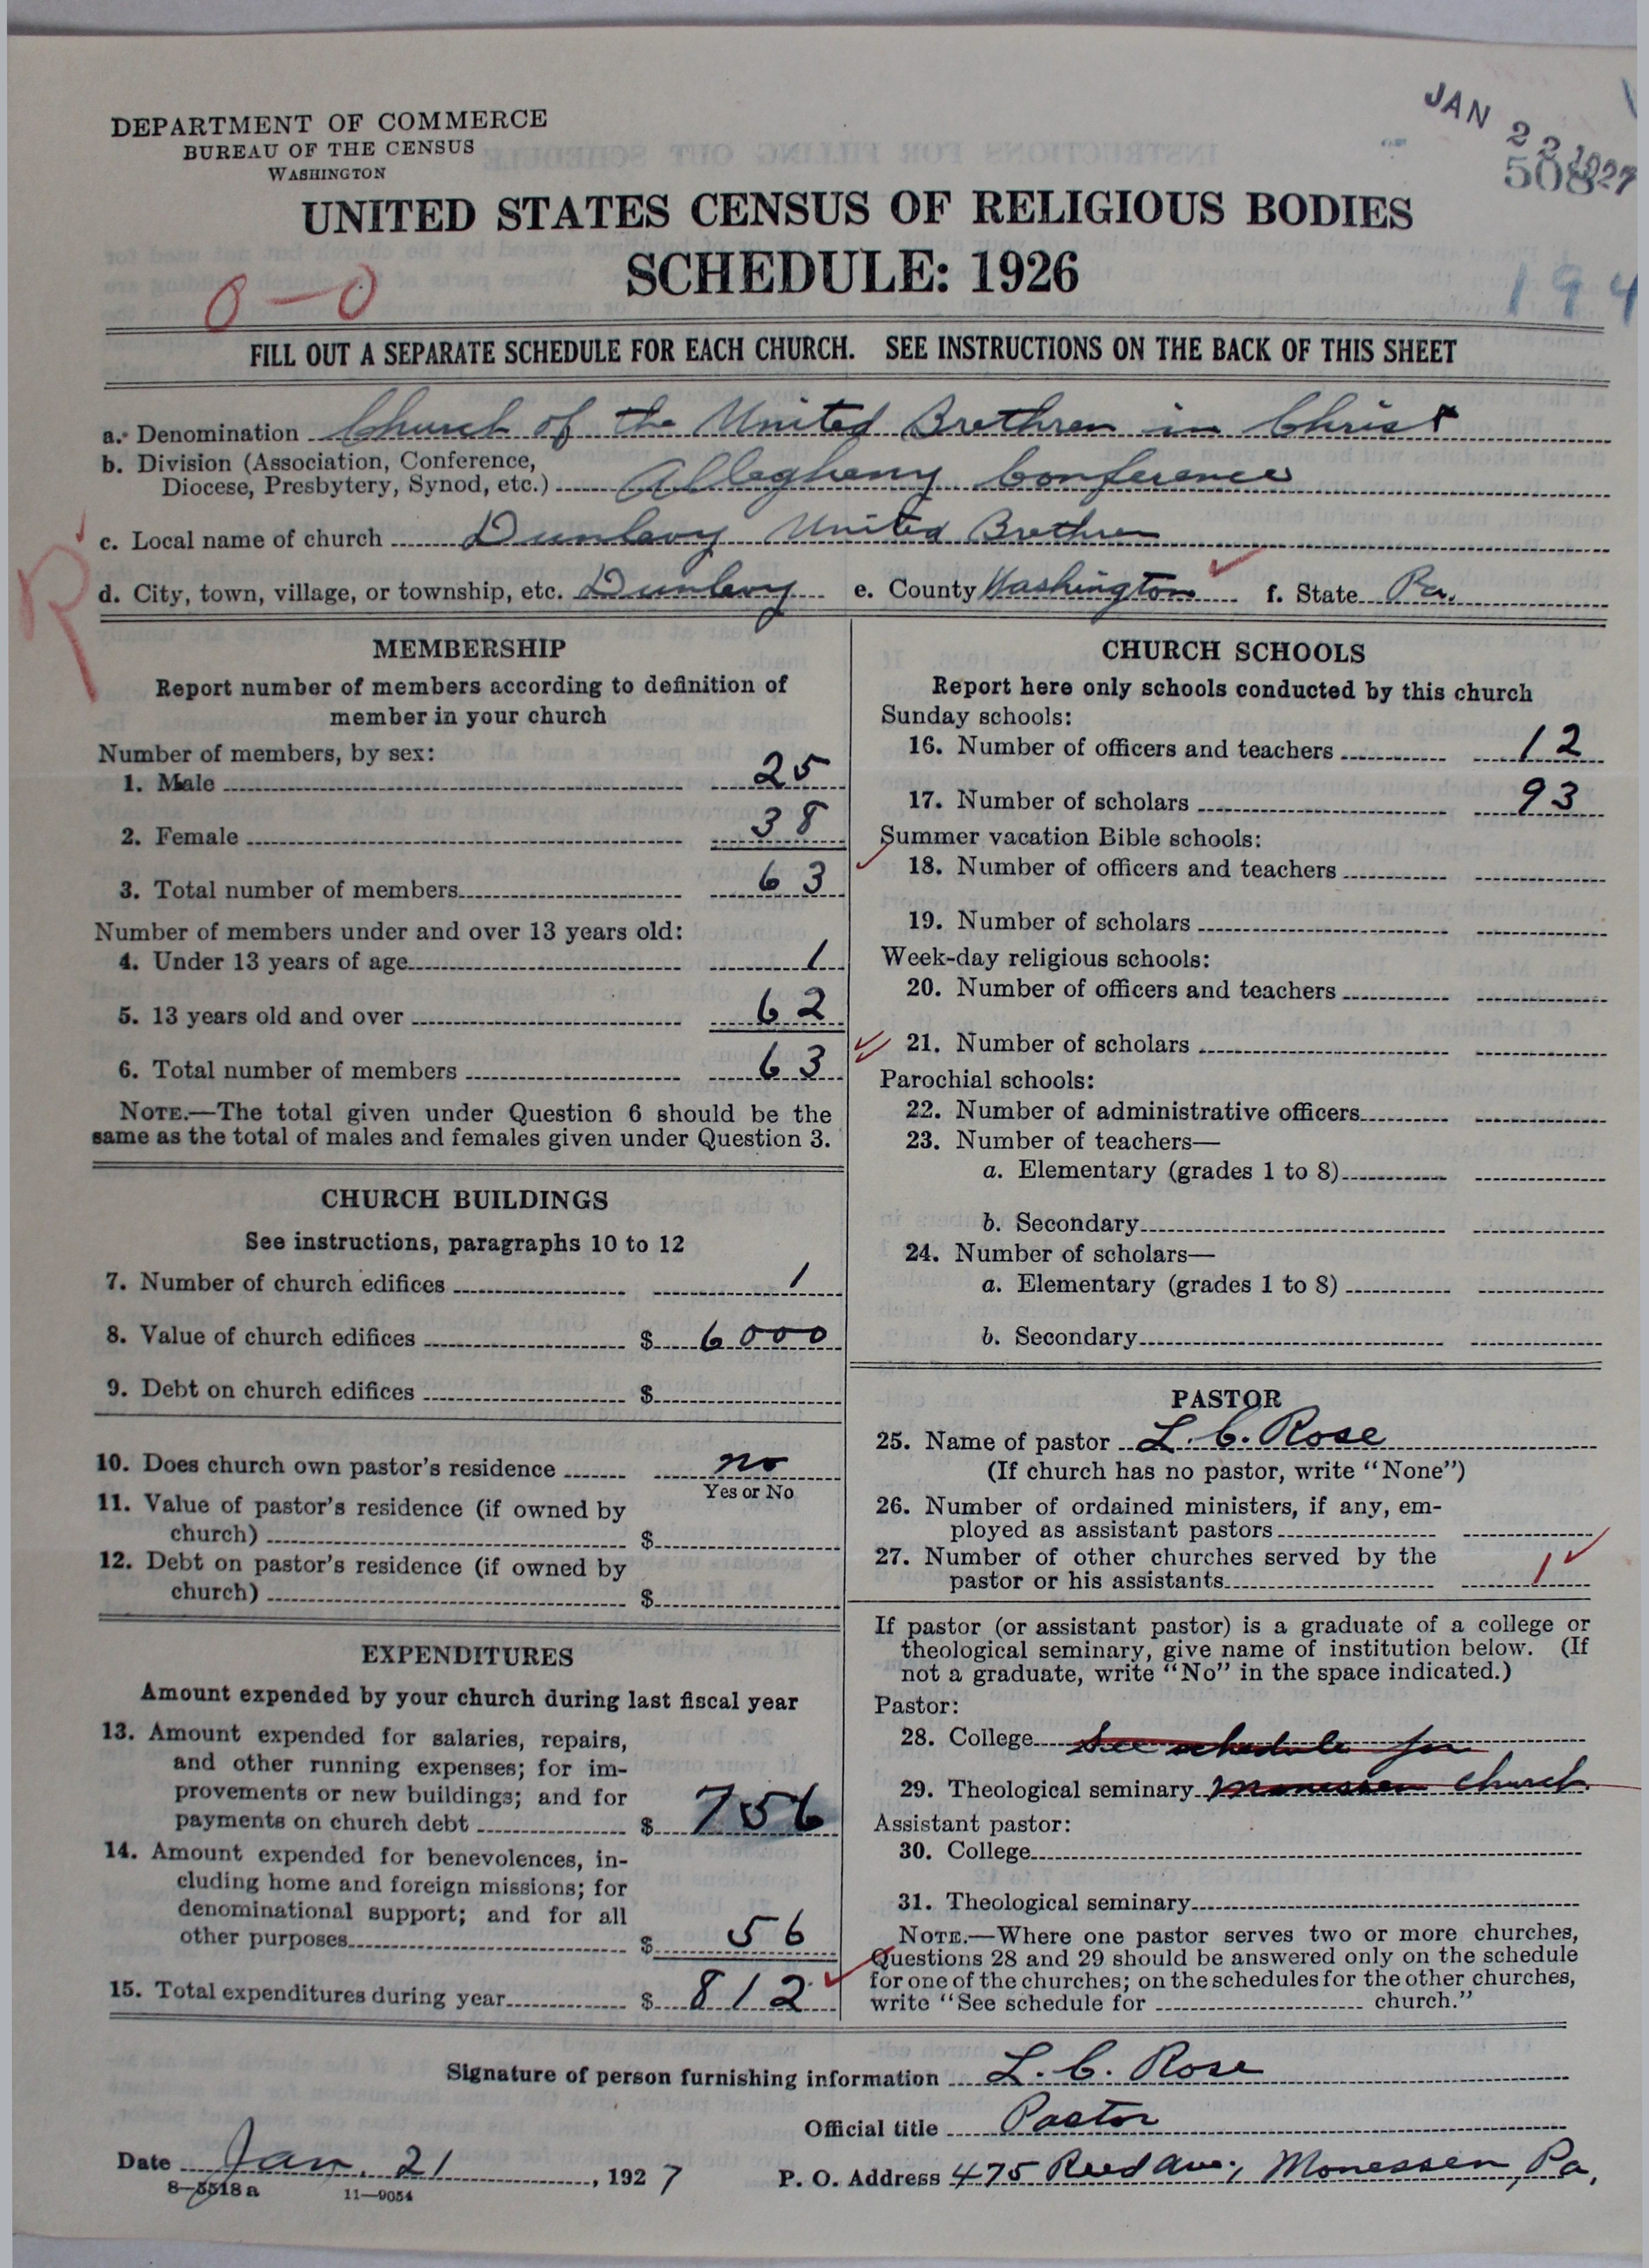 DEPARTMENT OF COMMERCE
BUREAU OF THE CENSUS
WASHINGTON
JAN 22 1927
508
UNITED STATES CENSUS OF RELIGIOUS BODIES
SCHEDULE: 1926
0-0
194
FILL OUT A SEPARATE SCHEDULE FOR EACH CHURCH. SEE INSTRUCTIONS ON THE BACK OF THIS SHEET
a. Denomination Church of the United Brethren in Christ
b. Division (Association, Conference,
Diocese, Presbytery, Synod, etc.) Allegheny Conference
c. Local name of church Dunlevy United Brethren
R
d. City, town, village, or township, etc. Dunlevy e. County Washington f. State Pa.
MEMBERSHIP
Report number of members according to definition of
member in your church
Number of members, by sex:
1. Male 25
2. Female 38
3. Total number of members 63
Number of members under and over 13 years old:
4. Under 13 years of age 1
5. 13 years old and over 62
6. Total number of members 63
NOTE.—The total given under Question 6 should be the
same as the total of males and females given under Question 3.
CHURCH BUILDINGS
See instructions, paragraphs 10 to 12
7. Number of church edifices 1
8. Value of church edifices $ 6000
9. Debt on church edifices $
10. Does church own pastor's residence no
Yes or No
11. Value of pastor's residence (if owned by
church) $
12. Debt on pastor's residence (if owned by
church) $
EXPENDITURES
Amount expended by your church during last fiscal year
13. Amount expended for salaries, repairs,
and other running expenses; for im-
provements or new buildings; and for
payments on church debt $ 756
14. Amount expended for benevolences, in-
cluding home and foreign missions; for
denominational support; and for all
other purposes $ 56
15. Total expenditures during year $ 812
CHURCH SCHOOLS
Report here only schools conducted by this church
Sunday schools:
16. Number of officers and teachers 12
17. Number of scholars 93
Summer vacation Bible schools:
18. Number of officers and teachers
19. Number of scholars
Week-day religious schools:
20. Number of officers and teachers
21. Number of scholars
Parochial schools:
22. Number of administrative officers
23. Number of teachers—
a. Elementary (grades 1 to 8)
b. Secondary
24. Number of scholars—
a. Elementary (grades 1 to 8)
b. Secondary
PASTOR
25. Name of pastor L. C. Rose
(If church has no pastor, write "None")
26. Number of ordained ministers, if any, em-
ployed as assistant pastors
27. Number of other churches served by the
pastor or his assistants 1
If pastor (or assistant pastor) is a graduate of a college or
theological seminary, give name of institution below. (If
not a graduate, write "No" in the space indicated.)
Pastor:
28. College See schedule for
29. Theological seminary Monessen Church.
Assistant pastor:
30. College
31. Theological seminary
NOTE.—Where one pastor serves two or more churches,
Questions 28 and 29 should be answered only on the schedule
for one of the churches; on the schedules for the other churches,
write "See schedule for church."
Signature of person furnishing information L. C. Rose
Official title Pastor
Date Jan. 21, 1927 P. O. Address 475 Reed Ave., Monessen, Pa.
8-5518 a 11-9054